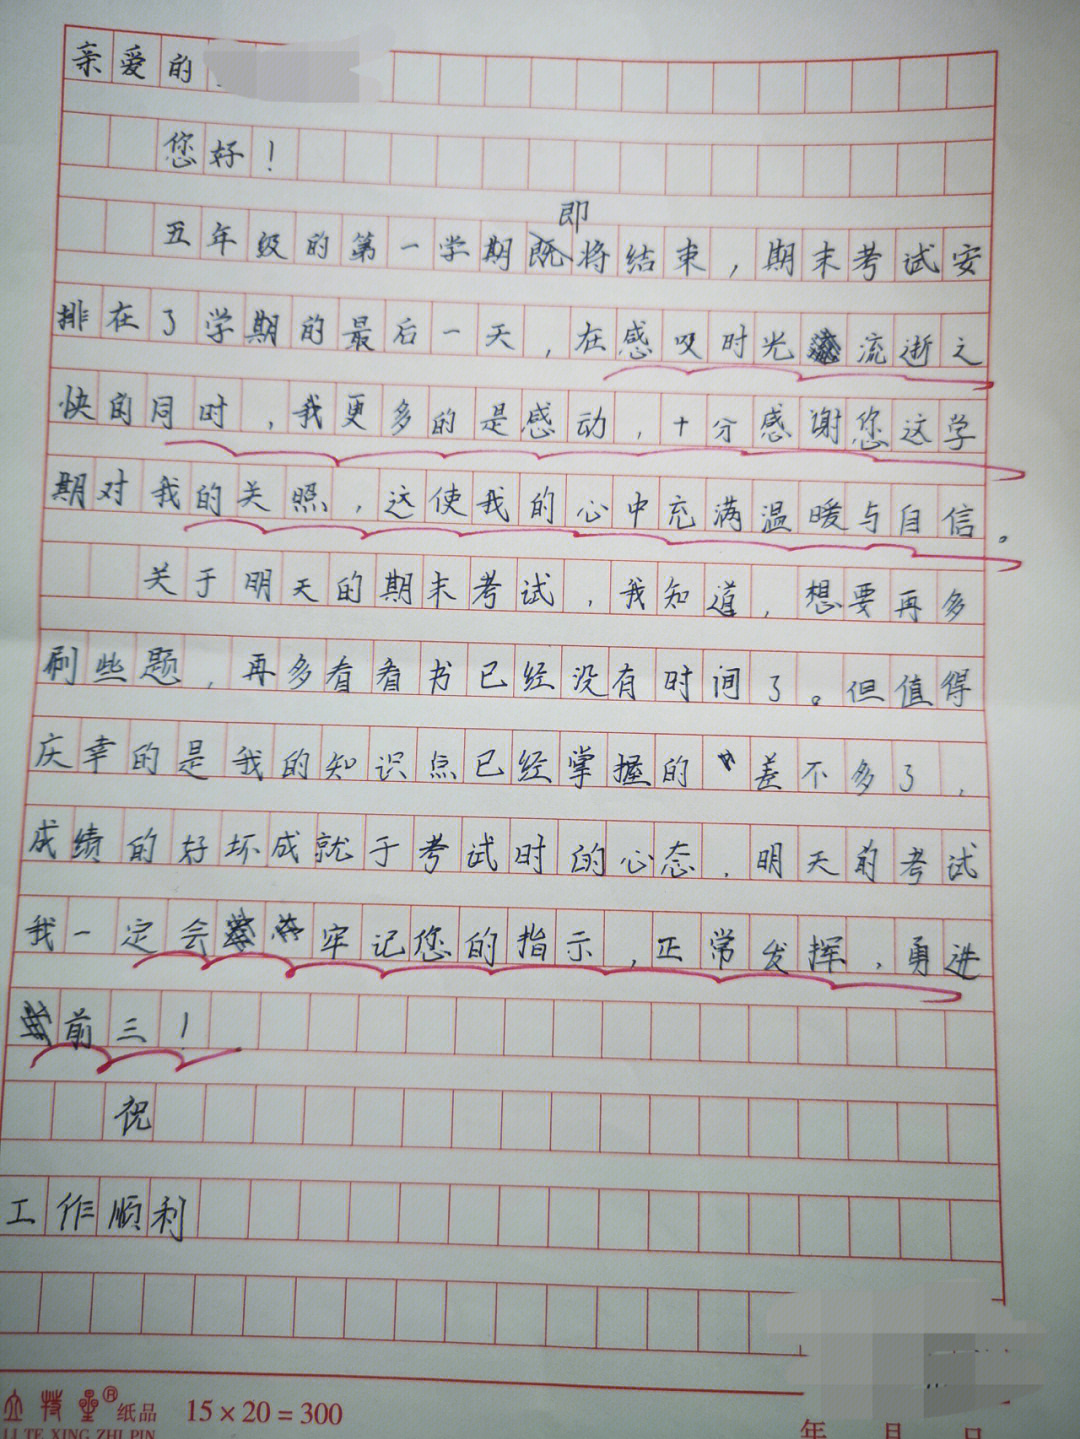 亲爱的
您好！
即
五年级的第一学期既将结束，期末考试安
排在了学期的最后一天，在感叹时光流逝之
快的同时，我更多的是感动，十分感谢您这学
期对我的关照，这使我的心中充满温暖与自信。
关于明天的期末考试，我知道，想要再多
刷些题，再多看看书已经没有时间了。但值得
庆幸的是我的知识点已经掌握的差不多了，
成绩的好坏成就于考试时的心态，明天的考试
我一定会牢记您的指示，正常发挥，勇进
前三！
祝
工作顺利
立特星®纸品 15×20=300
LI TE XING ZHI PIN
年 月 日